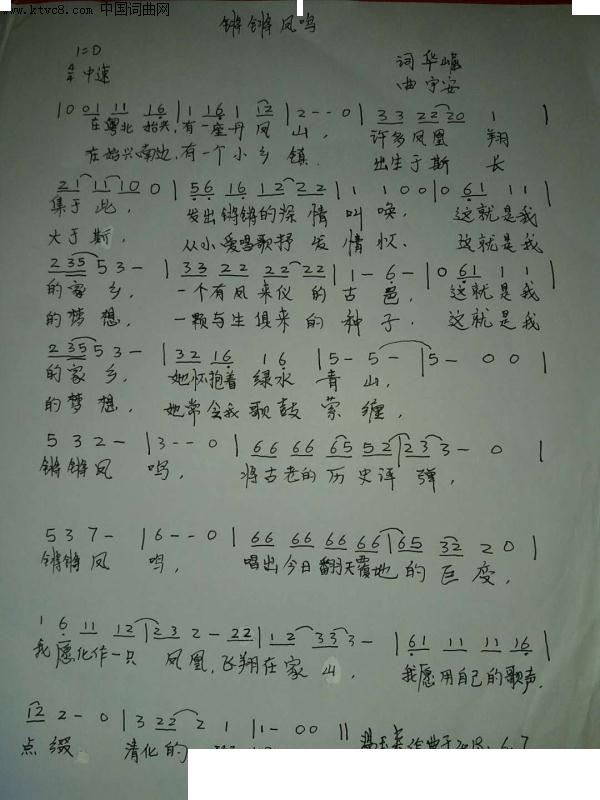 www.ktvc8.com 中国词曲网
锵锵凤鸣
1=D
4/4 中速
词 华
曲 宇安
|0 01 11 16|1 16 1 12|2--0|33 22 20 1|
在粤北 抬头,有一座丹凤 山, 许多凤凰 翔
在始兴南边,有一个小乡 镇. 出生于斯 长
21 11 10 0|56 16 12 22|1 1 00|0 61 11|
集于此, 发出锵锵的深情叫唤. 这就是我
大于斯, 从小爱唱歌抒发情怀. 这就是我
2 35 5 3-|33 22 22 22|1-6-|0 61 1 1|
的家乡, 一个有凤来仪的古邑, 这就是我
的梦想, 一颗与生俱来的种子. 这就是我
2 35 5 3-|32 16 1 6|5-5-|5-00|
的家乡, 她怀抱着绿水青山,
的梦想, 她常令我歌鼓萦缠,
5 3 2-|3--0|66 66 65 52|23 3-0|
锵锵凤 鸣, 将古老的历史评弹,
5 3 7-|6--0|66 66 66 66|65 32 2 0|
锵锵凤 鸣, 唱出今日翻天覆地的巨变,
1 6 11 12|23 2-22|12 33 3-|61 11 11 16|
我愿化作一只凤凰,飞翔在家山, 我愿用自己的歌声,
12 2-0|3 22 2 1|1-00||
点缀 清化的 作曲于2018.6.7